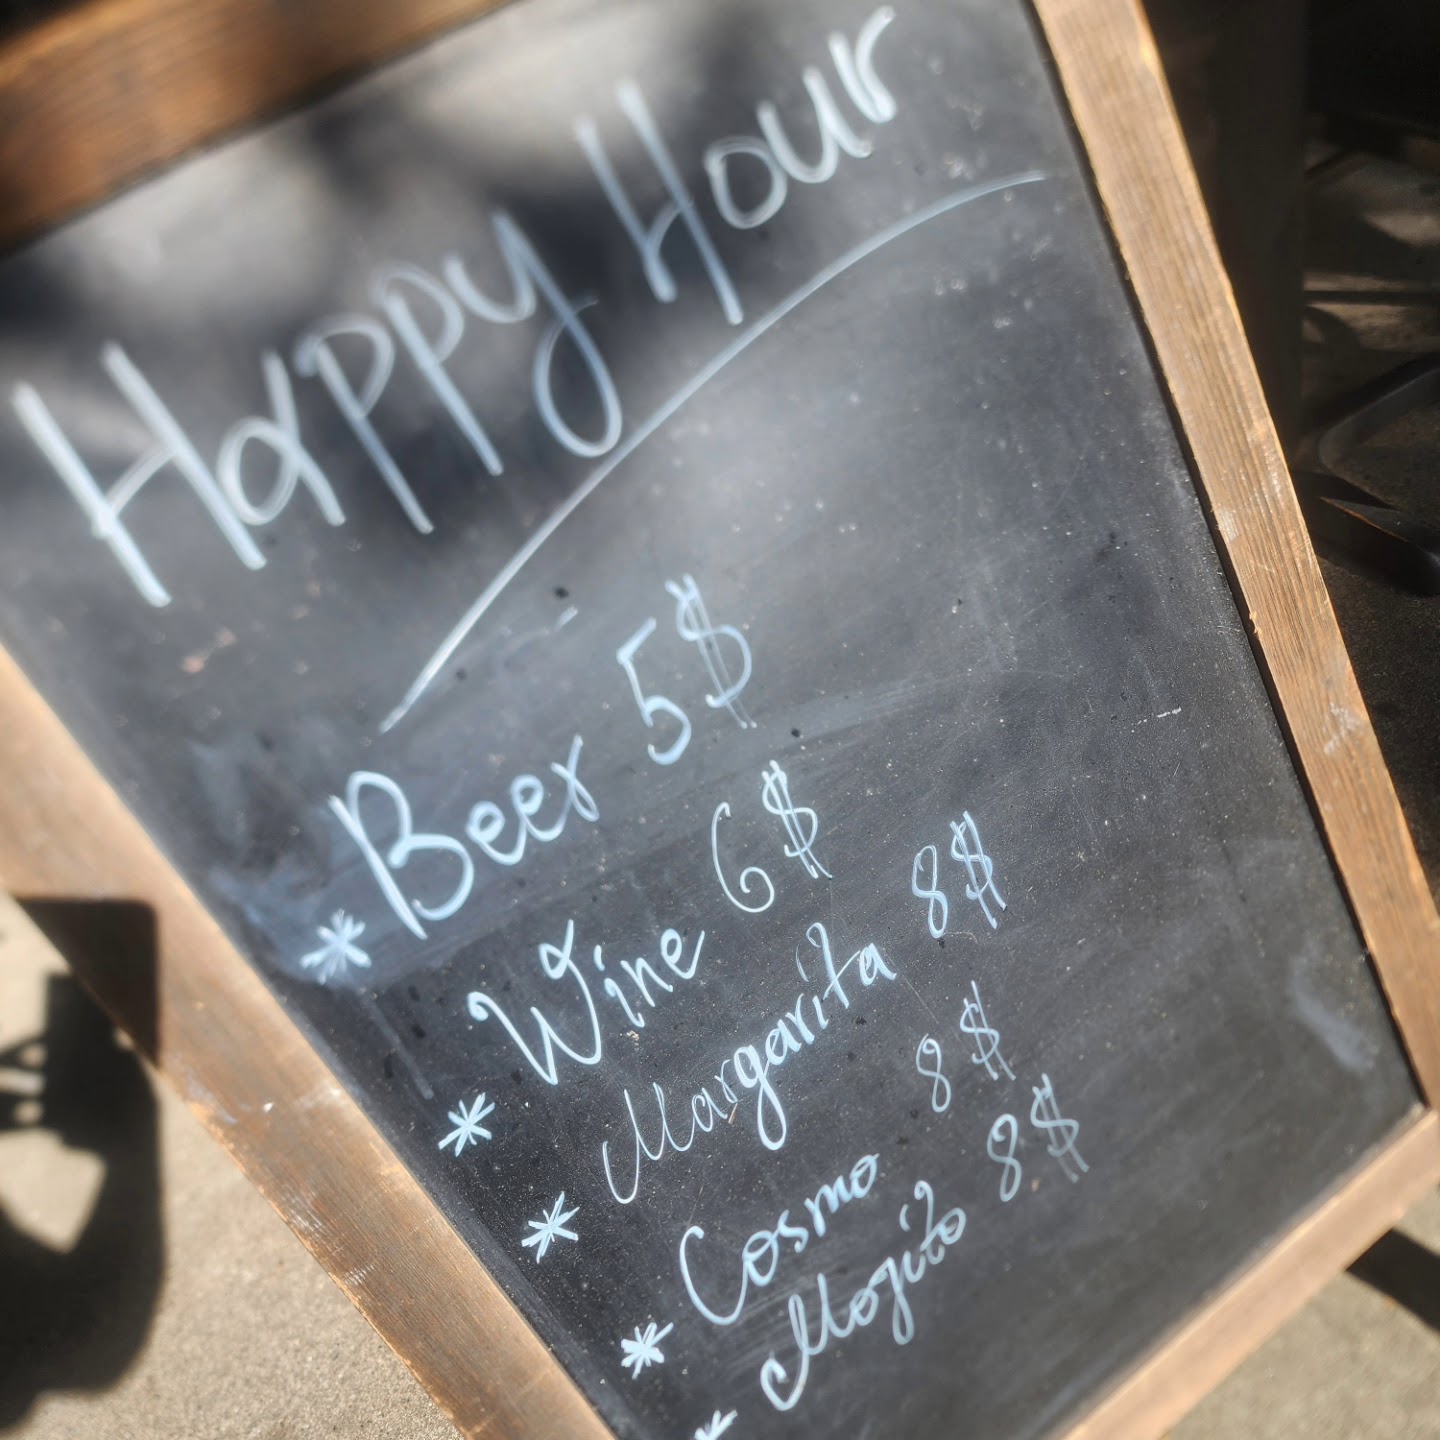 Happy Hour
* Beer 5$
* Wine 6$
* Margarita 8$
* Cosmo 8$
* Mojito 8$